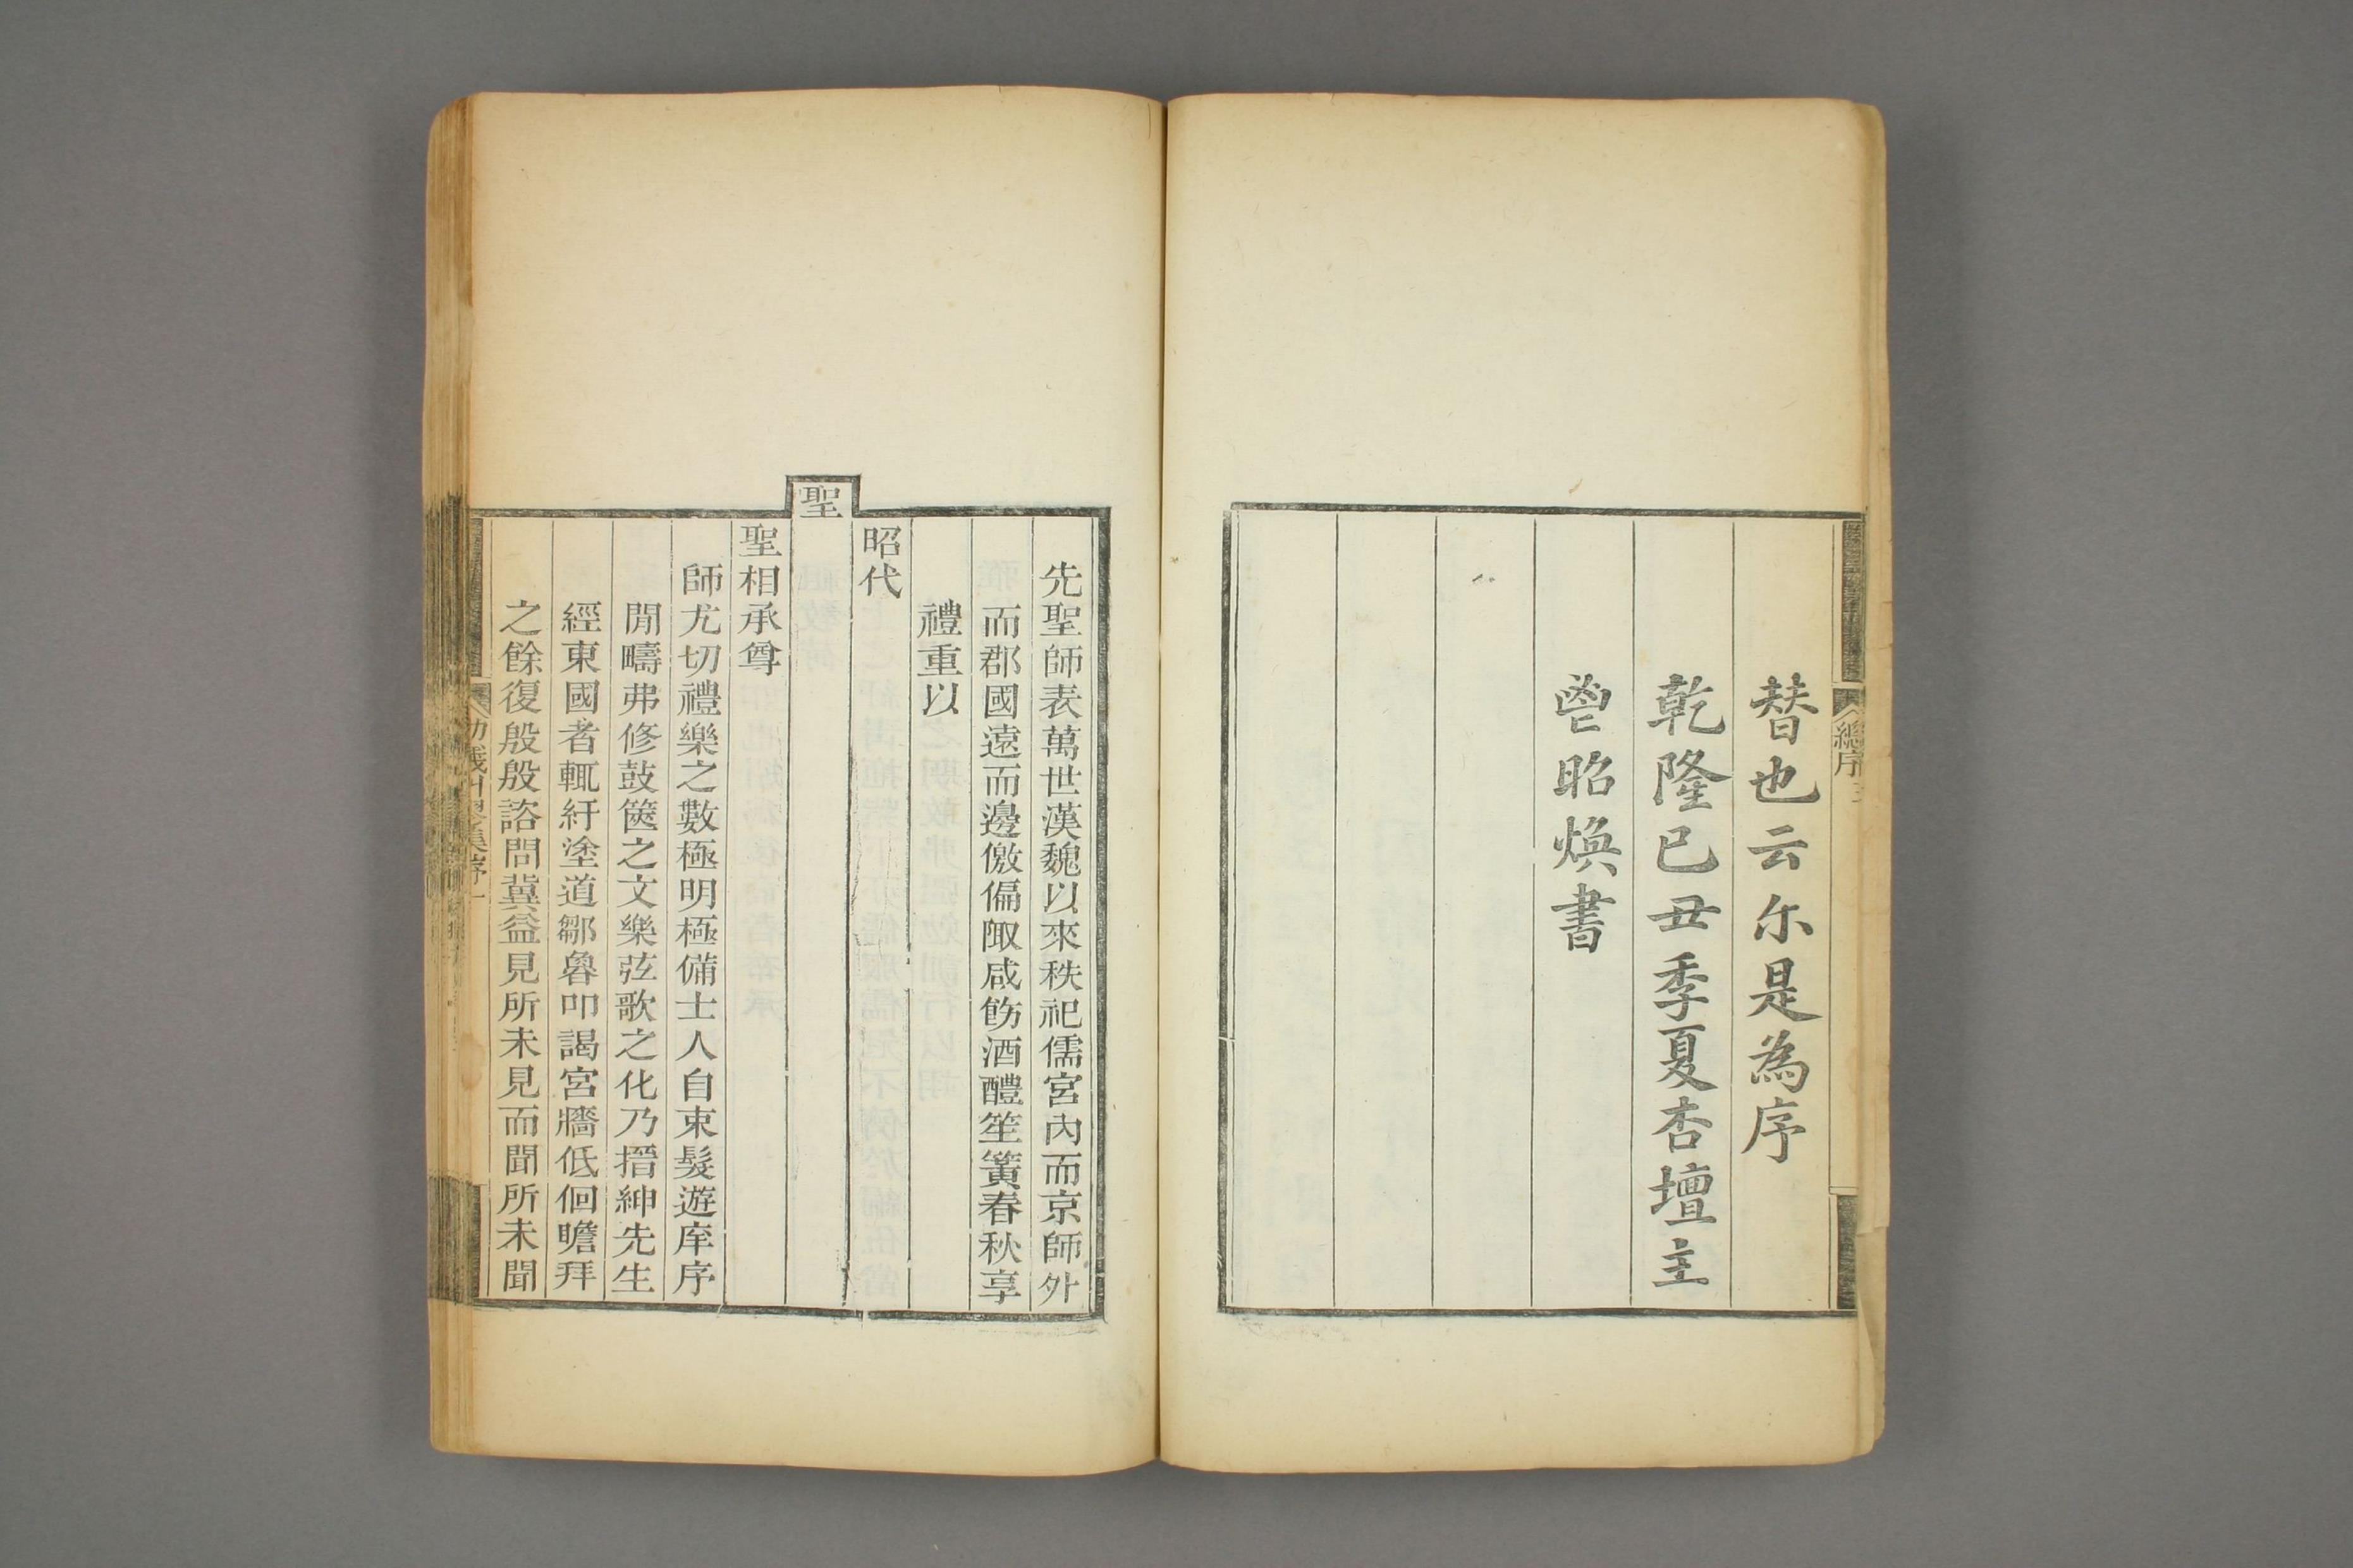 總序
替也云尔是為序
乾隆已丑季夏杏壇主
鬯昭煥書
先聖師表萬世漢魏以來秩祀儒宮內而京師外
而郡國遠而邊儌偏陬咸飭酒醴笙簧春秋享
禮重以
昭代
聖
聖相承尊
師尤切禮樂之數極明極備士人自束髮遊庠序
閒疇弗修鼓篋之文樂弦歌之化乃搢紳先生
經東國者輒紆塗道鄒魯叩謁宮牆低佪瞻拜
之餘復殷殷諮問冀益見所未見而聞所未聞